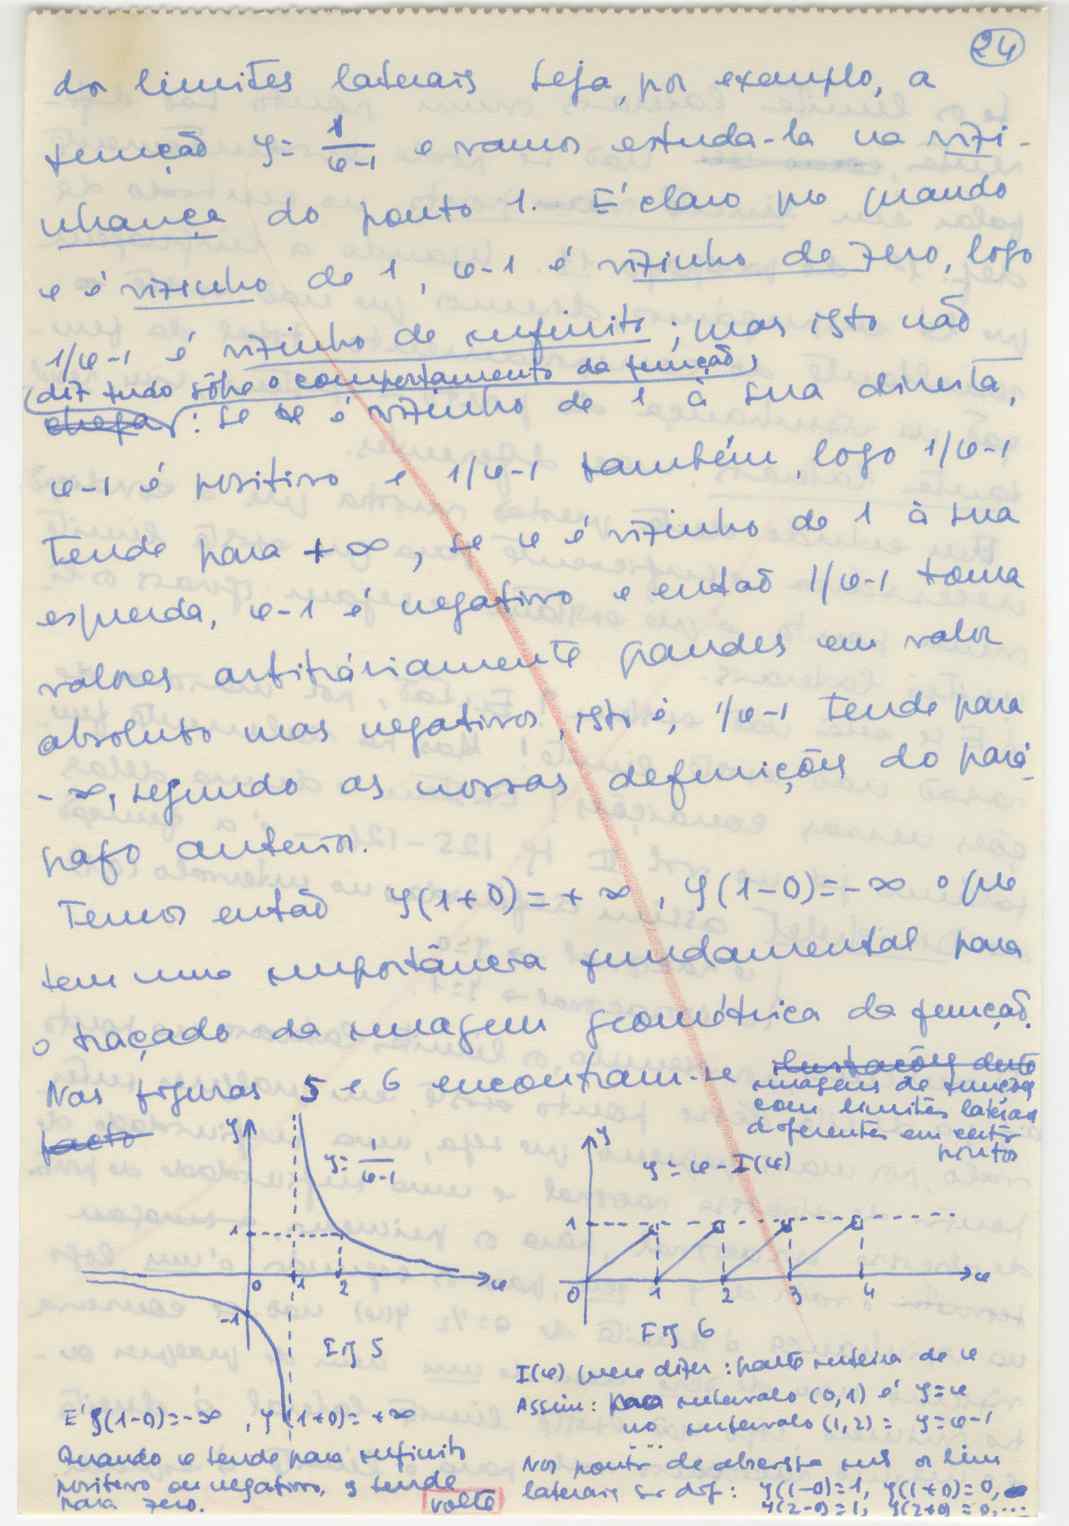 24
dos limites laterais Seja, por exemplo, a
função y = 1/x-1 e vamos estuda-la na vizi-
nhança do ponto 1. É claro que quando
x é vizinho de 1, x-1 é vizinho de zero, logo
1/x-1 é vizinho de infinito; mas isto não
(diz tudo sôbre o comportamento da função)
chega: se x é vizinho de 1 à sua direita,
x-1 é positivo e 1/x-1 também, logo 1/x-1
tende para +∞, se x é vizinho de 1 à sua
esquerda, x-1 é negativo e então 1/x-1 toma
valores arbitràriamente grandes em valor
absoluto mas negativos, isto é, 1/x-1 tende para
-∞, segundo as nossas definições do pará-
grafo anterior.
Temos então y(1+0)=+∞, y(1-0)=-∞ o que
tem uma importância fundamental para
o traçado da imagem geométrica da função.
Nas figuras 5 e 6 encontram-se ilustrações deste
facto
imagens de funções
com limites laterais
diferentes em certos
pontos
y
y = 1/x-1
1
0 1 2 x
-1
Fig 5
y
y = x - I(x)
1
0 1 2 3 4 x
Fig 6
É y(1-0)=-∞, y(1+0)=+∞
Quando x tende para infinito
positivo ou negativo, y tende
para zero.
volte
I(x) quere dizer: parte inteira de x
Assim: no intervalo (0,1) é y=x
no intervalo (1,2) = y=x-1
...
Nos pontos de abscissa os lim
laterais são dif: y(1-0)=1, y(1+0)=0,
y(2-0)=1, y(2+0)=0,...